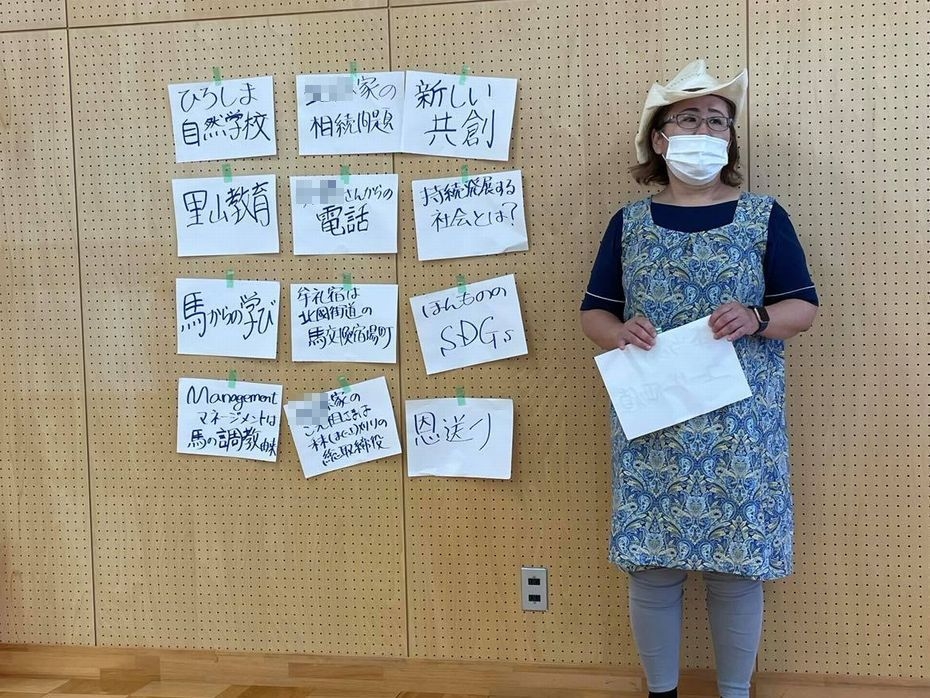 ひろしま
自然学校
家の
相続問題
新しい
共創
里山教育
さんからの
電話
持続発展する
社会とは?
馬からの学び
牟礼宿は
北国街道の
馬交換宿場町
ほんものの
SDGs
Management
マネージメントは
馬の調教由来
家の
ご先祖さまは
総取締役
恩送り